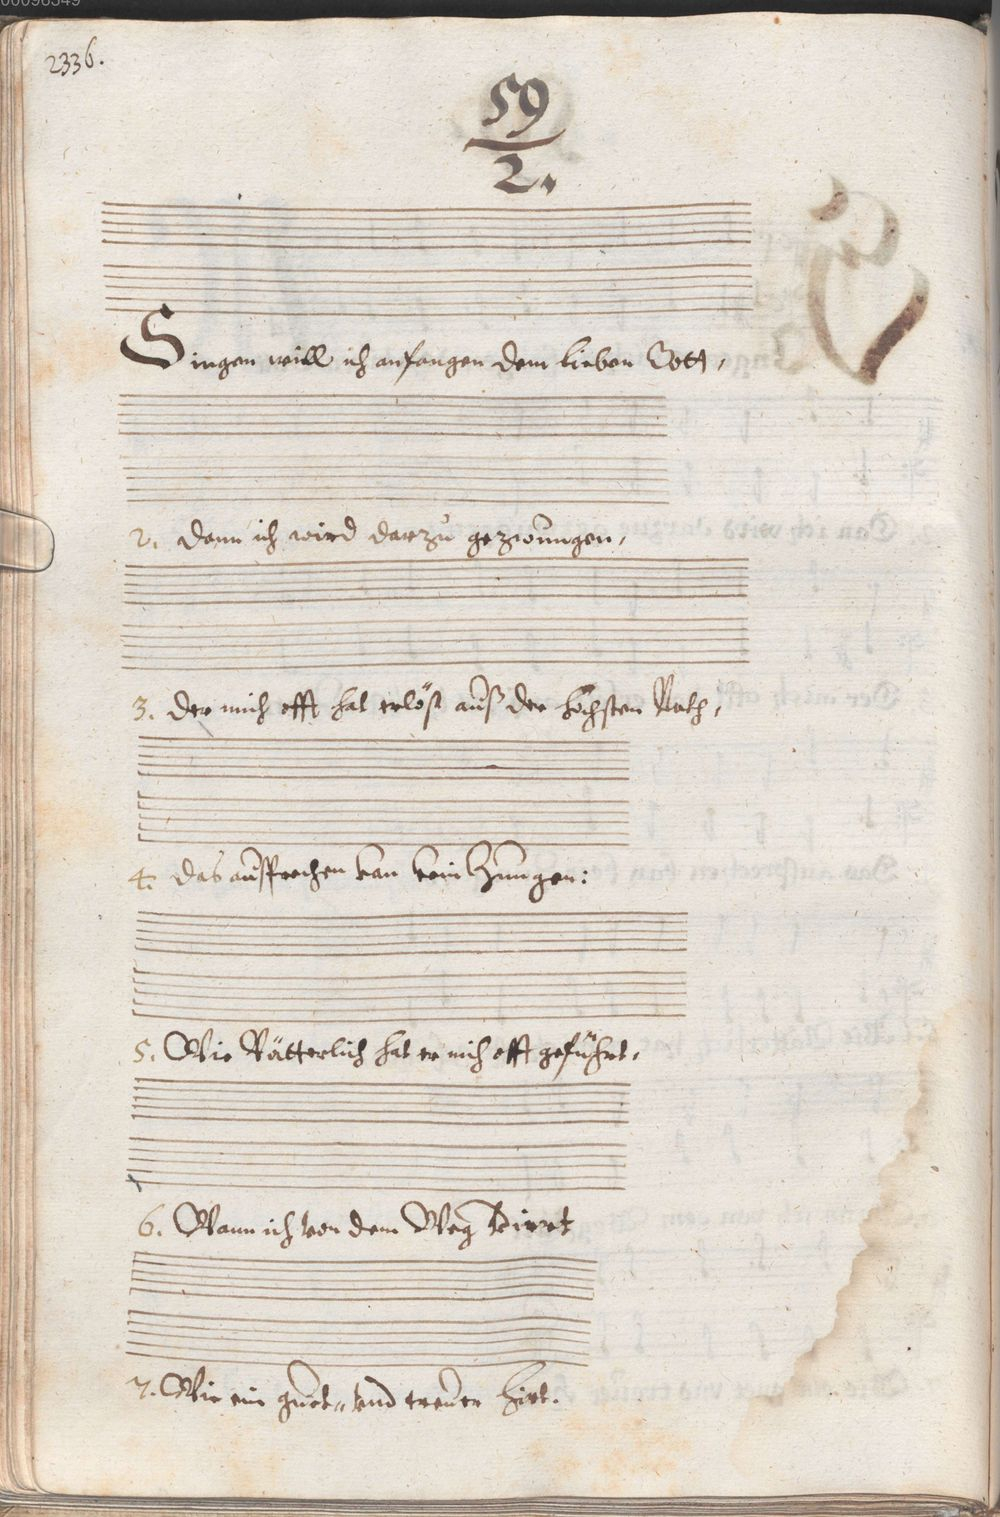 2336.
59
2.
Singen will ich anfangen dem lieben Gott,
2. dann ich wird darzu gezwungen,
3. der mich offt hat erlöst auß der höchsten Noth,
4. das aussprechen kan kein Zungen:
5. Wie Vätterlich hat er mich offt geführt,
6. Wann ich von dem Weg
7. Wie ein guet- und treuer hirt.